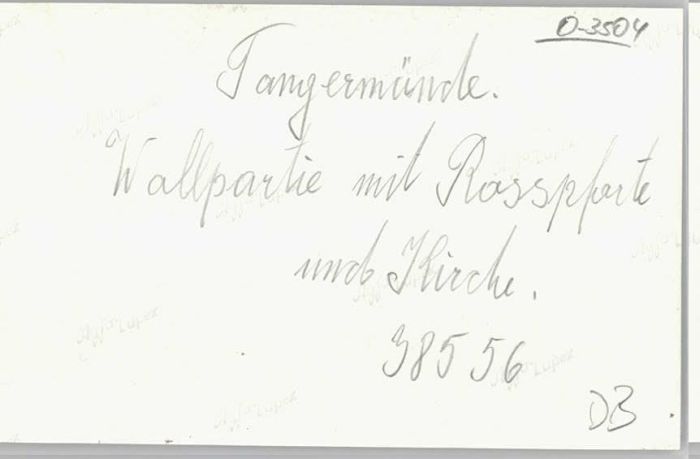 O-3504
Tangermünde.
Wallpartie mit Rosspforte
und Kirche.
38556
DB